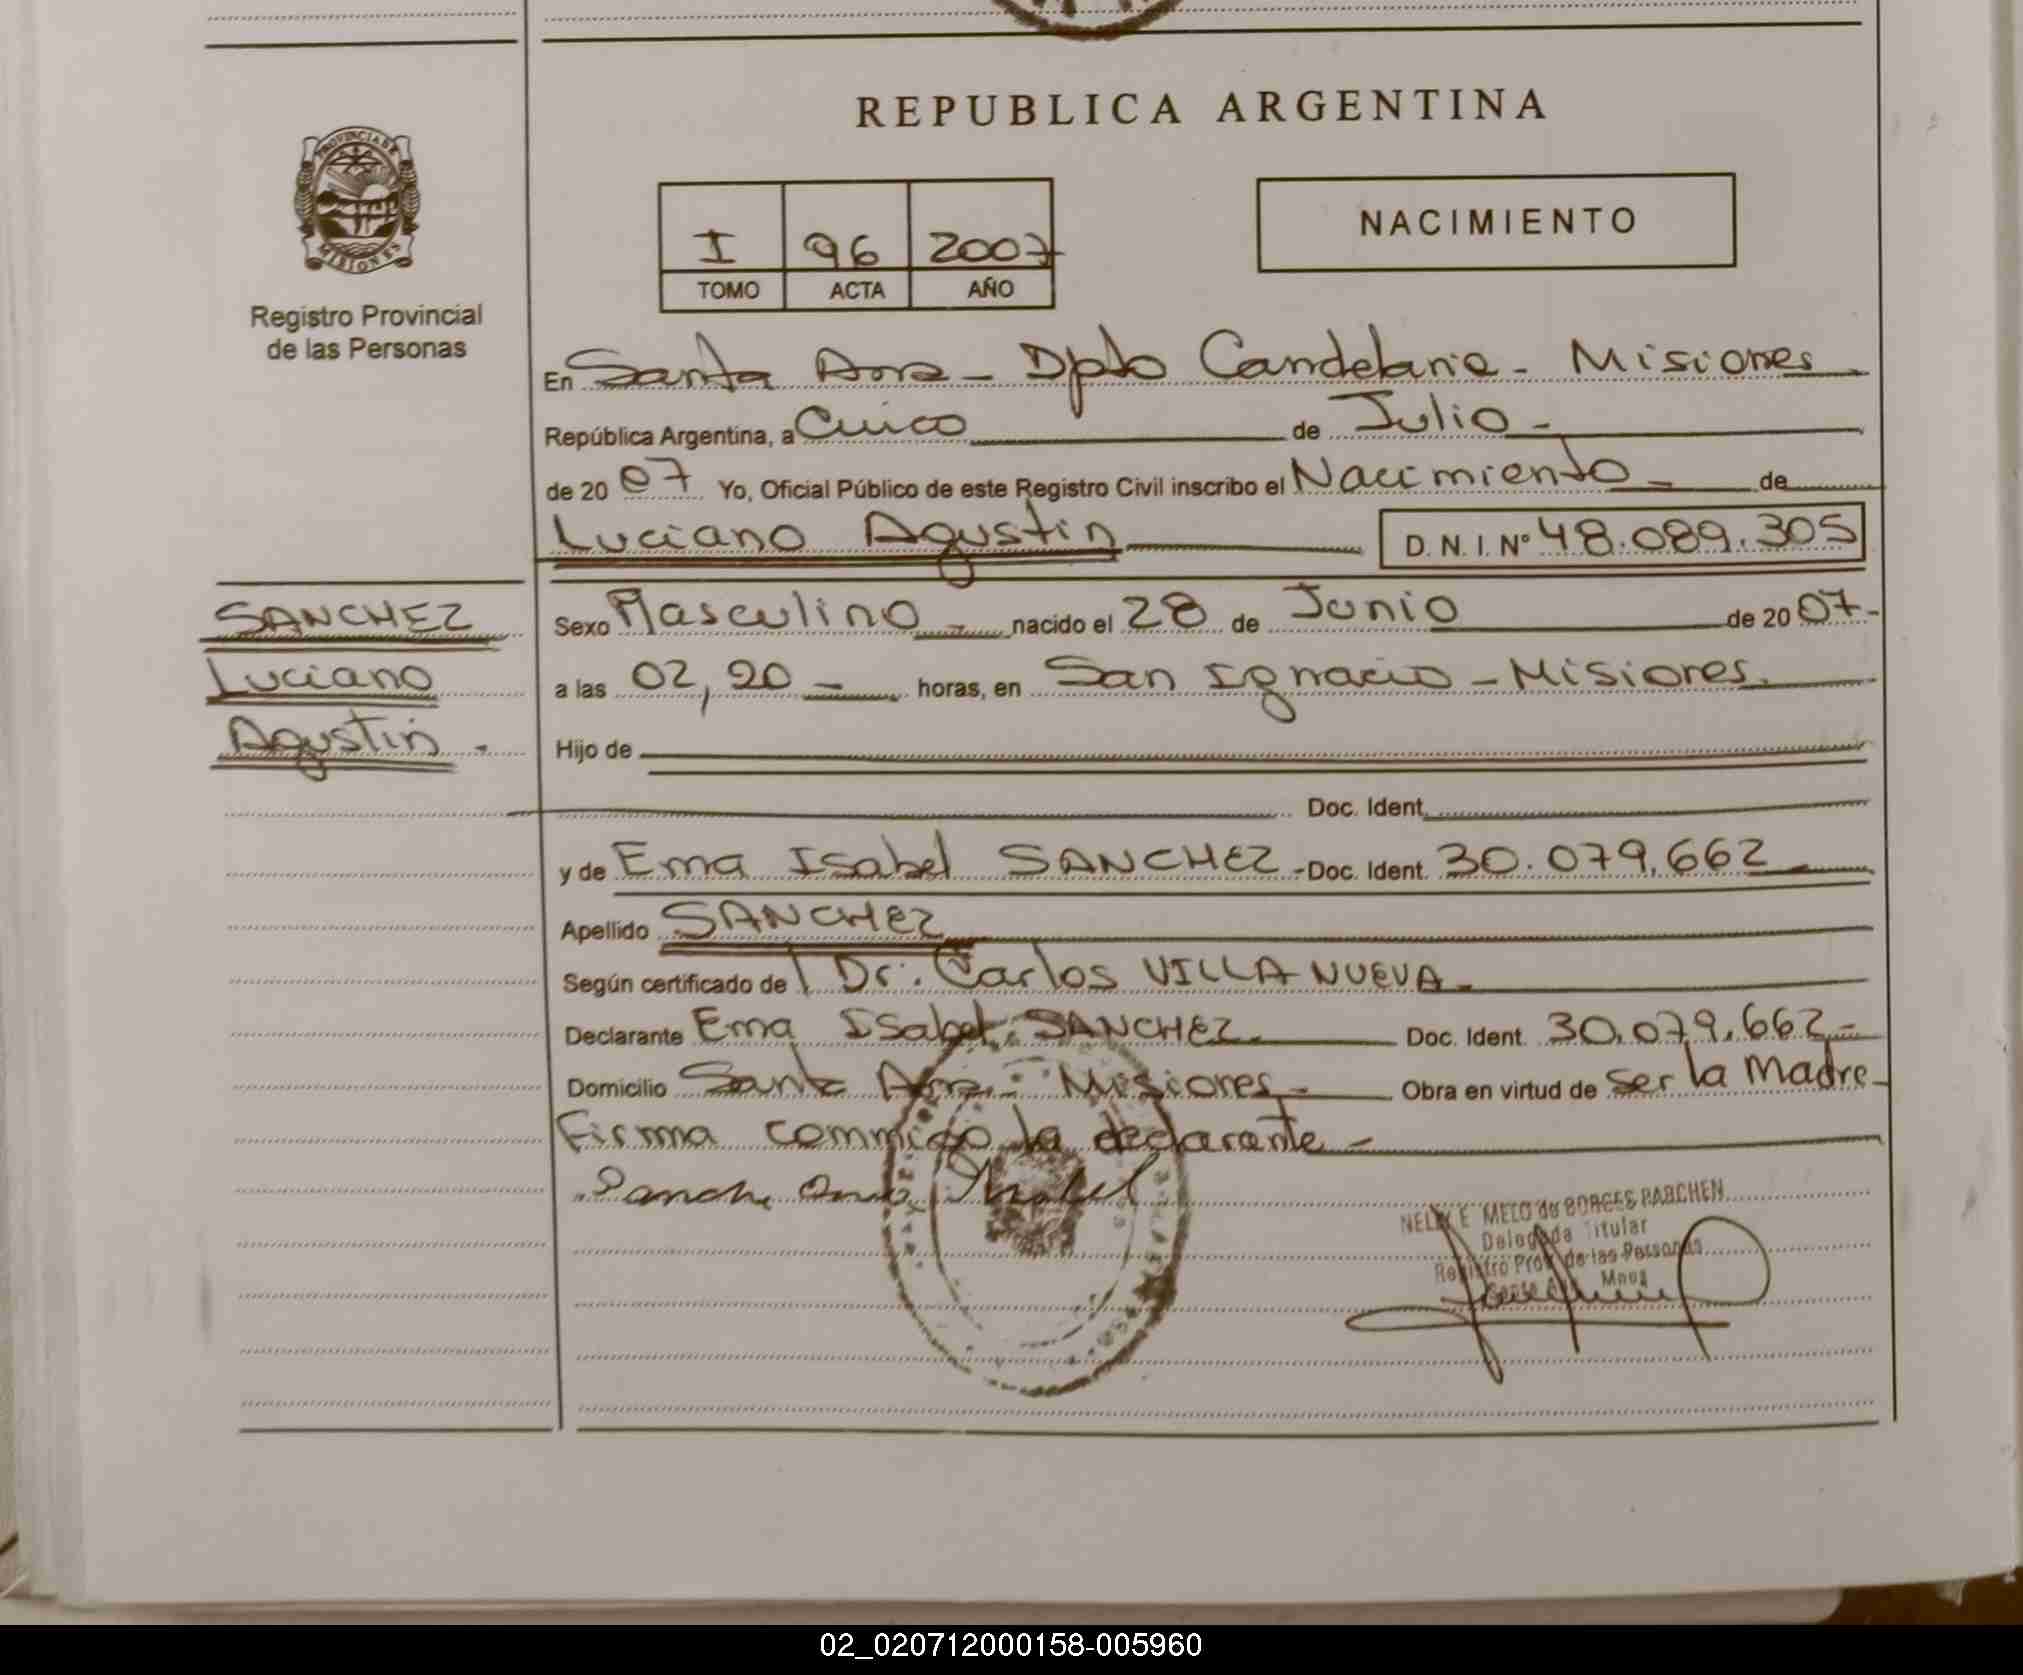 REPUBLICA ARGENTINA
PROVINCIA DE
MISIONES
Registro Provincial
de las Personas
NACIMIENTO
I 96 2007
TOMO ACTA AÑO
En Santa Ana - Dpto Candelaria - Misiones
República Argentina, a Cinco de Julio -
de 20 07 Yo, Oficial Público de este Registro Civil inscribo el Nacimiento - de
Luciano Agustin D. N. I. Nº 48.089.305
SANCHEZ
Luciano
Agustin -
Sexo Masculino - nacido el 28 de Junio de 20 07-
a las 02,20 - horas, en San Ignacio - Misiones.
Hijo de
Doc. Ident.
y de Ema Isabel SANCHEZ - Doc. Ident. 30.079.662 -
Apellido SANCHEZ
Según certificado de Dr. Carlos VILLANUEVA -
Declarante Ema Isabel SANCHEZ. Doc. Ident. 30.079.662 -
Domicilio Santa Ana - Misiones - Obra en virtud de ser la Madre -
Firma conmigo la declarante -
NELLY E. MELO de BORGES PABCHEN
Delegada Titular
Registro Prov. de las Personas
Santa Ana Mnes
02_020712000158-005960